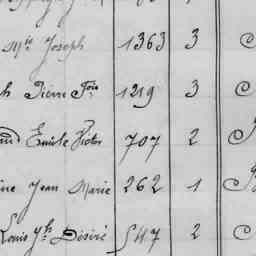 Mie Joseph 1363 3
h Pierre Fois 1219 3
Emile Victor 707 2
ine Jean Marie 262 1
Louis Jh Désiré 547 2